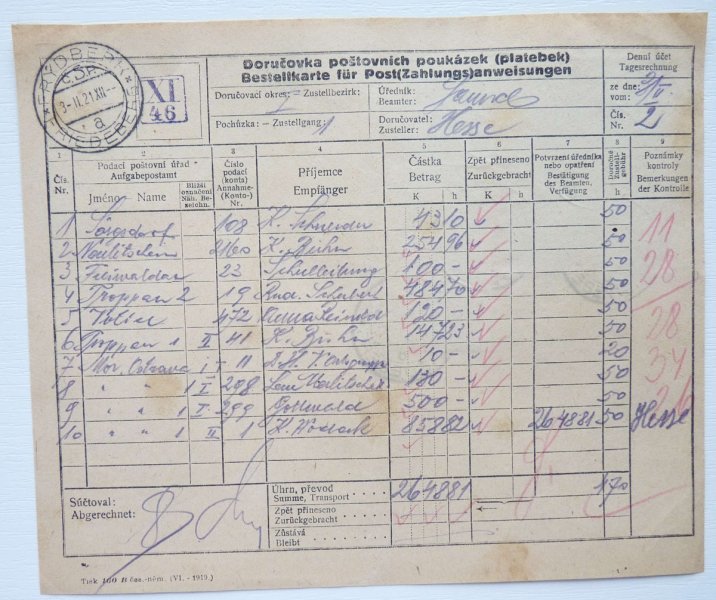 FRYDBERK
Č.S.P.
3-II.21 XII--
a
*FRIEDEBERG*
XI
46
Doručovka poštovních poukázek (platebek)
Bestellkarte für Post(Zahlungs)anweisungen
Doručovací okres: = Zustellbezirk:
Úředník:
Beamter:
Pochůzka: = Zustellgang: 1
Doručovatel:
Zusteller: Hesse
Denní účet
Tagesrechnung
ze dne:
vom: 3/II
Čís.
Nr. 2
1 2 3 4 5 6 7 8 9
Čís.
Nr.
Podací poštovní úřad
Aufgabepostamt
Jméno - Name
Bližší
označení
Näh. Be-
zeichn.
Číslo
podací
(konta)
Annahme-
(Konto-)
Nr.
Příjemce
Empfänger
Částka
Betrag
K h
Zpět přineseno
Zurückgebracht
K h
Potvrzení úředníka
nebo opatření
Bestätigung
des Beamten,
Verfügung
Doručné
Zustell-
gebühr
h
Poznámky
kontroly
Bemerkungen
der Kontrolle
1 Sörgsdorf 108 K. Schneider 43 10 50
2 2160 K. 254 96 50 11
3 Freiwaldau 23 Schulleitung 100 - 50 28
4 Troppau 2 19 Rud. Schubert 484 70 50
5 472 120 - 50
6 Troppau 1 II 41 K. 147 23 50 28
7 Mor. Ostrava 1 I 11 10 - 20
8 " " 1 I 298 130 - 50 34
9 " " 1 I 299 Gottwald 500 - 50
10 " " 1 II 1 K. 858 82 2648 81 50 Hesse
Súčtoval:
Abgerechnet:
Úhrn, převod
Summe, Transport 2648 81 470
Zpět přineseno
Zurückgebracht
Zůstává
Bleibt
Tisk 160 B čes.-něm. (VI. - 1919.)